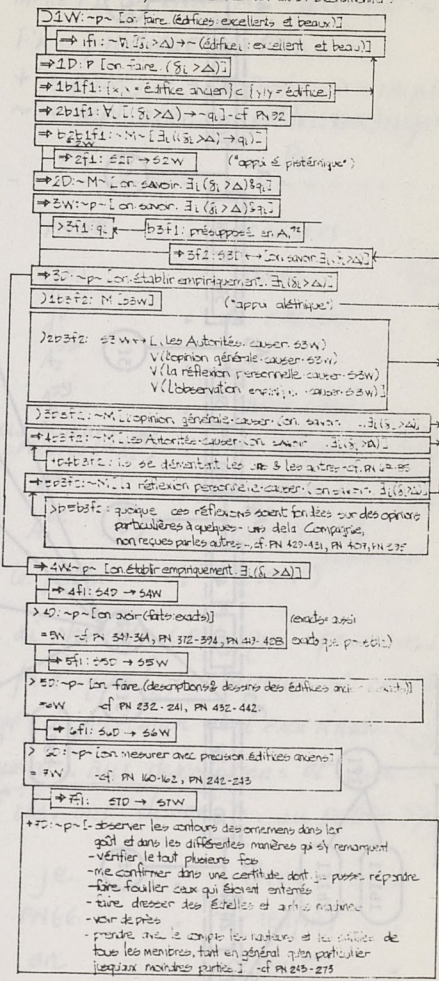 )1W: ~p~ [on. faire. (édifices: excellents et beaux)]
⇒ 1f1: ~∀i [(δi > Δ) → ~(édificei: excellent et beau)]
⇒ 1D: P [on. faire. (δi > Δ)]
⇒ 1b1f1: {x,x = édifice ancien} c {y|y = édifice}
⇒ 2b1f1: ∀i [(δi > Δ) → qi] - cf PN 92
⇒ b2b1f1: ~M~ [∃i ((δi > Δ) → qi)]
⇒ 2f1: S2D → S2W ("appui épistémique")
⇒ 2D: ~M~ [on. savoir. ∃i (δi > Δ) & qi]
⇒ 3W: ~p~ [on. savoir. ∃i (δi > Δ) & qi]
>3f1: qi b3f1: présupposé en A,
⇒ 3f2: S3D ↔ [on. savoir. ∃i (δi > Δ)]
⇒ 3D: ~p~ [on. établir empiriquement. ∃i (δi > Δ)]
)1b3f2: M [S3W] ("appui aléthique")
)2b3f2: S3W ↔ [(Les Autorités. causer. S3W)
V (l'opinion générale. causer. S3W)
V (la réflexion personnelle. causer. S3W)
V (l'observation causer. S3W)]
)3b3f2: ~M [l'opinion générale. causer. (on. savoir. ∃i (δi > Δ)
⇒ 4b3f2: ~M [Les Autorités. causer. (on. savoir. ∃i (δi > Δ)]
+b4b3f2: ils se démentent les uns & les autres - cf. PN
⇒ 5b3f2: ~M [la réflexion personnelle. causer. (on. savoir. ∃i (δi > Δ)
>b5b3f2: quoique ces réflexions soient fondées sur des opinions
particulières à quelques-uns de la Compagnie,
non reçues par les autres -, cf. PN 429-431, PN 407, PN
⇒ 4W ~p~ [on. établir empiriquement. ∃i (δi > Δ)]
⇒ 4f1: S4D → S4W
> 4D: ~p~ [on avoir (faits: exacts)] (exacts: aussi
= 5W - cf PN 349-364, PN 372-394, PN 417-428 exacts que possible)
⇒ 5f1: S5D → S5W
> 5D: ~p~ [on. faire. (descriptions & dessins des édifices anciens: exacts)]
= 6W - cf PN 232-241, PN 432-442.
⇒ 6f1: S6D → S6W
> 6D: ~p~ [on mesurer avec precision. édifices anciens]
= 7W - cf. PN 160-162, PN 242-243
⇒ 7f1: S7D → S7W
+7D: ~p~ [- observer les contours des ornemens dans leur
goût et dans les différentes manières qui s'y remarquent
- vérifier le tout plusieurs fois
- me confirmer dans une certitude dont je pusse répondre
- faire fouiller ceux qui étoient enterrés
- faire dresser des échelles et autres machines
- voir de près
- prendre avec le compas les hauteurs et les saillies de
tous les membres, tant en général qu'en particulier
jusqu'aux moindres parties] - cf PN 243-273